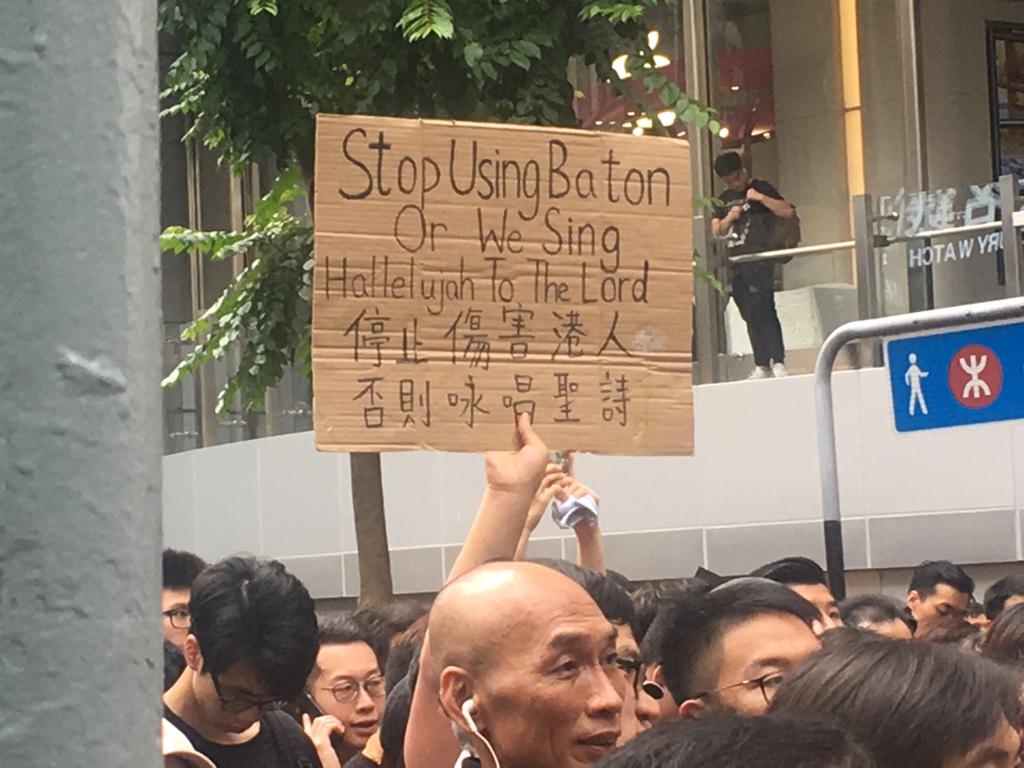 Stop Using Baton
Or We Sing
Hallelujah To The Lord
停止傷害港人
否則咏唱聖詩
RY WATCH